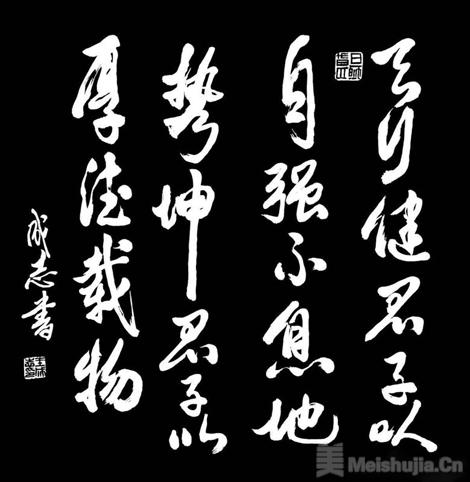 天行健君子以
自强不息地
势坤君子以
厚德载物
成志书
美 Meishujia.Cn